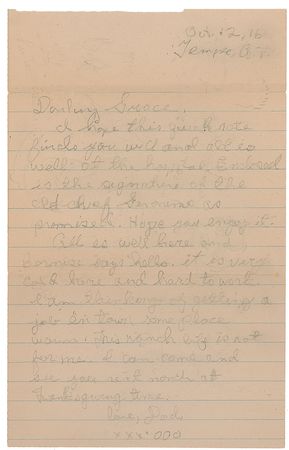 Oct. 12, 16
Tempe, A.T.
Darling Grace,
I hope this quick note
finds you well and all is
well at the hospital. Enclosed
is the signature of the
old chief Geronimo as
promised. Hope you enjoy it.
All is well here and
Bernise says hello. it is very
cold here and hard to work.
I am thinking of getting a
job in town some place
warm. This ranch life is not
for me. I can come and
see you next month at
Thanksgiving time.
love, Dad
xxx.000